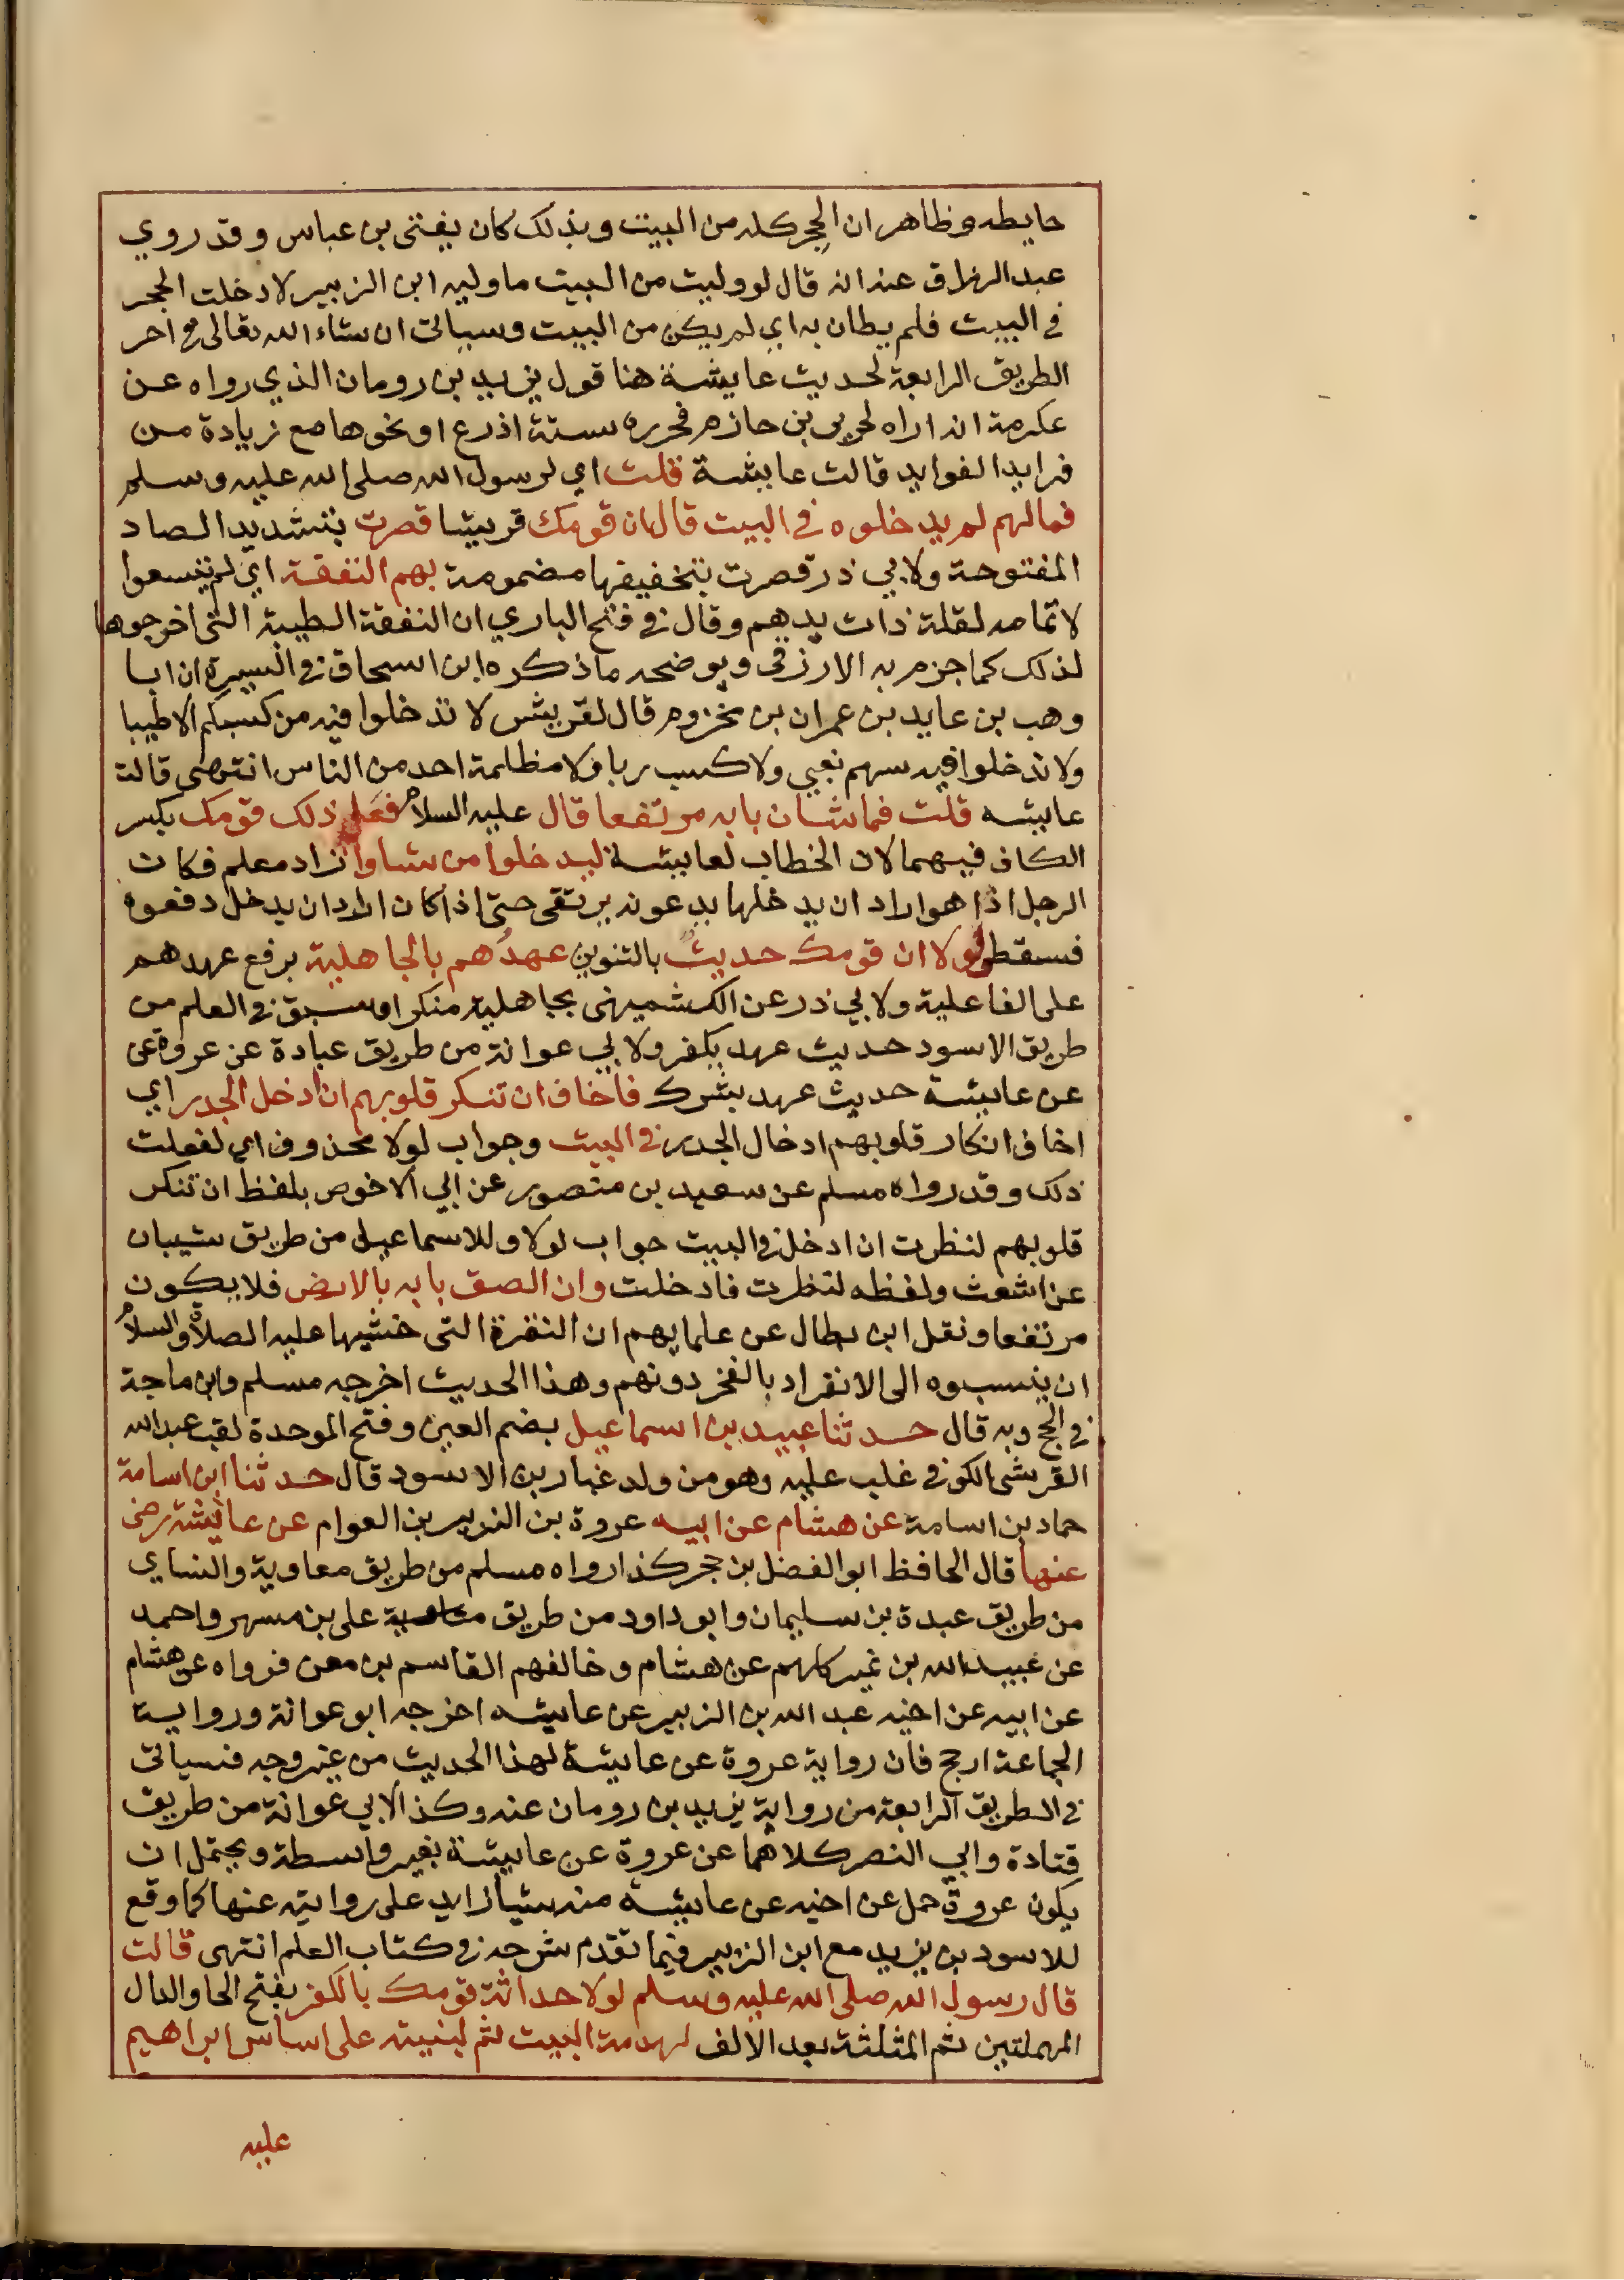 حايطه وظاهر ان الحِجر كله من البيت وبذلك كان يفتى بن عباس وقد روي
عبد الرزاق عنه انه قال لو وليت من البيت ما وليه ابن الزبير لادخلت الحجر
في البيت فلم يطاف به اي لم يكن من البيت وسياتى ان شاء الله تعالى في اخر
الطريق الرابعة لحديث عايشة هنا قول يزيد بن رومان الذي رواه عن
عكرمة انه اراه لجرير بن حازم فحرره ستة اذرع او نحوها مع زيادة من
فرايد الفوايد قالت عايشة قلت اي لرسول الله صلى الله عليه وسلم
فما لهم لم يدخلوه في البيت قال ان قومك قريشا قصرت بتشديد الصاد
المفتوحة ولابي ذر قصرت بتخفيفها مضمومة بهم النفقة اي لم يتسعوا
لاتمامه لقلة ذات يدهم وقال في فتح الباري ان النفقة الطيبة التى اخرجوها
لذلك كما جزم به الازرقى ويوضحه ما ذكره ابن اسحاق في السيرة ان ابا
وهب بن عايد بن عمران بن مخزوم قال لقريش لا تدخلوا فيه من كسبكم الا طيبا
ولا تدخلوا فيه سهم نغبي ولا كسب ربا ولا مظلمة احد من الناس انتهى قالت
عايشه قلت فما شان بابه مرتفعا قال عليه السلام فعَل ذلك قومك بكسر
الكاف فيهما لان الخطاب لعايشة ليدخلوا من شاوا زاد معلم فكان
الرجل اذا هو اراد ان يدخلها يدعونه يرتقى حتى اذا كان اراد ان يدخل دفعوه
فسقط ولولا ان قومك حديثٌ بالتنوين عهدُهم بالجاهلية برفع عهدهم
على الفاعلية ولابي ذر عن الكشميهنى بجاهلية منكرا وسبق في العلم من
طريق الاسود حديث عهد بكفر ولابي عوانة من طريق عبادة عن عروة عن
عن عايشة حديث عهد بشرك فاخاف ان تنكر قلوبهم ان ادخل الجدر اي
اخاف انكار قلوبهم ادخال الجدر في البيت وجواب لولا محذوف اي لفعلت
ذلك وقد رواه مسلم عن سعيد بن منصور عن ابي الاخوص بلفظ ان تنكر
قلوبهم لنظرت ان ادخل في البيت جواب لولا وللاسماعيلى من طريق شيبان
عن اشعث ولفظه لنظرت فادخلت وان الصق بابه بالارض فلا يكون
مرتفعا ونقل ابن بطال عن علمايهم ان النفرة التى خشيها عليه الصلاة والسلام
ان ينسبوه الى الانفراد بالفخر دونهم وهذا الحديث اخرجه مسلم وابن ماجة
في الحج وبه قال حدثنا عبيد بن اسماعيل بضم العين وفتح الموحدة لقب عبد الله
القرشى الكوفي غلب عليه وهو من ولد غبار بن الاسود قال حدثنا ابن اسامة
حماد بن اسامة عن هشام عن ابيه عروة بن الزبير بن العوام عن عائشة رضى
عنها قال الحافظ ابو الفضل بن حجر كذا رواه مسلم من طريق معاوية والنساي
من طريق عبدة بن سليمان وابو داود من طريق على بن مسهر واحمد
عن عبيد الله بن نمير كلهم عن هشام وخالفهم القاسم بن معن فرواه عن هشام
عن ابيه عن اخيه عبد الله بن الزبير عن عايشه اخرجه ابو عوانة ورواية
الجماعة ارجح فان رواية عروة عن عايشة لهذا الحديث من غير وجه فسياتى
في الطريق الرابعة من رواية يزيد بن رومان عنه وكذا لابي عوانة من طريق
قتادة وابي النضر كلاهما عن عروة عن عايشة بغير واسطة ويحتمل ان
يكون عروة حمل عن اخيه عن عايشة منه شيا زايد على روايته عنها كما وقع
للاسود بن يزيد مع ابن الزبير فيما تقدم شرحه في كتاب العلم انتهى قالت
قال رسول الله صلى الله عليه وسلم لولا حداثة قومك بالكفر بفتح الحا والدال
المهملتين ثم المثلثة بعد الالف لهدمت البيت ثم لبنيته على اساس ابراهيم
عليه